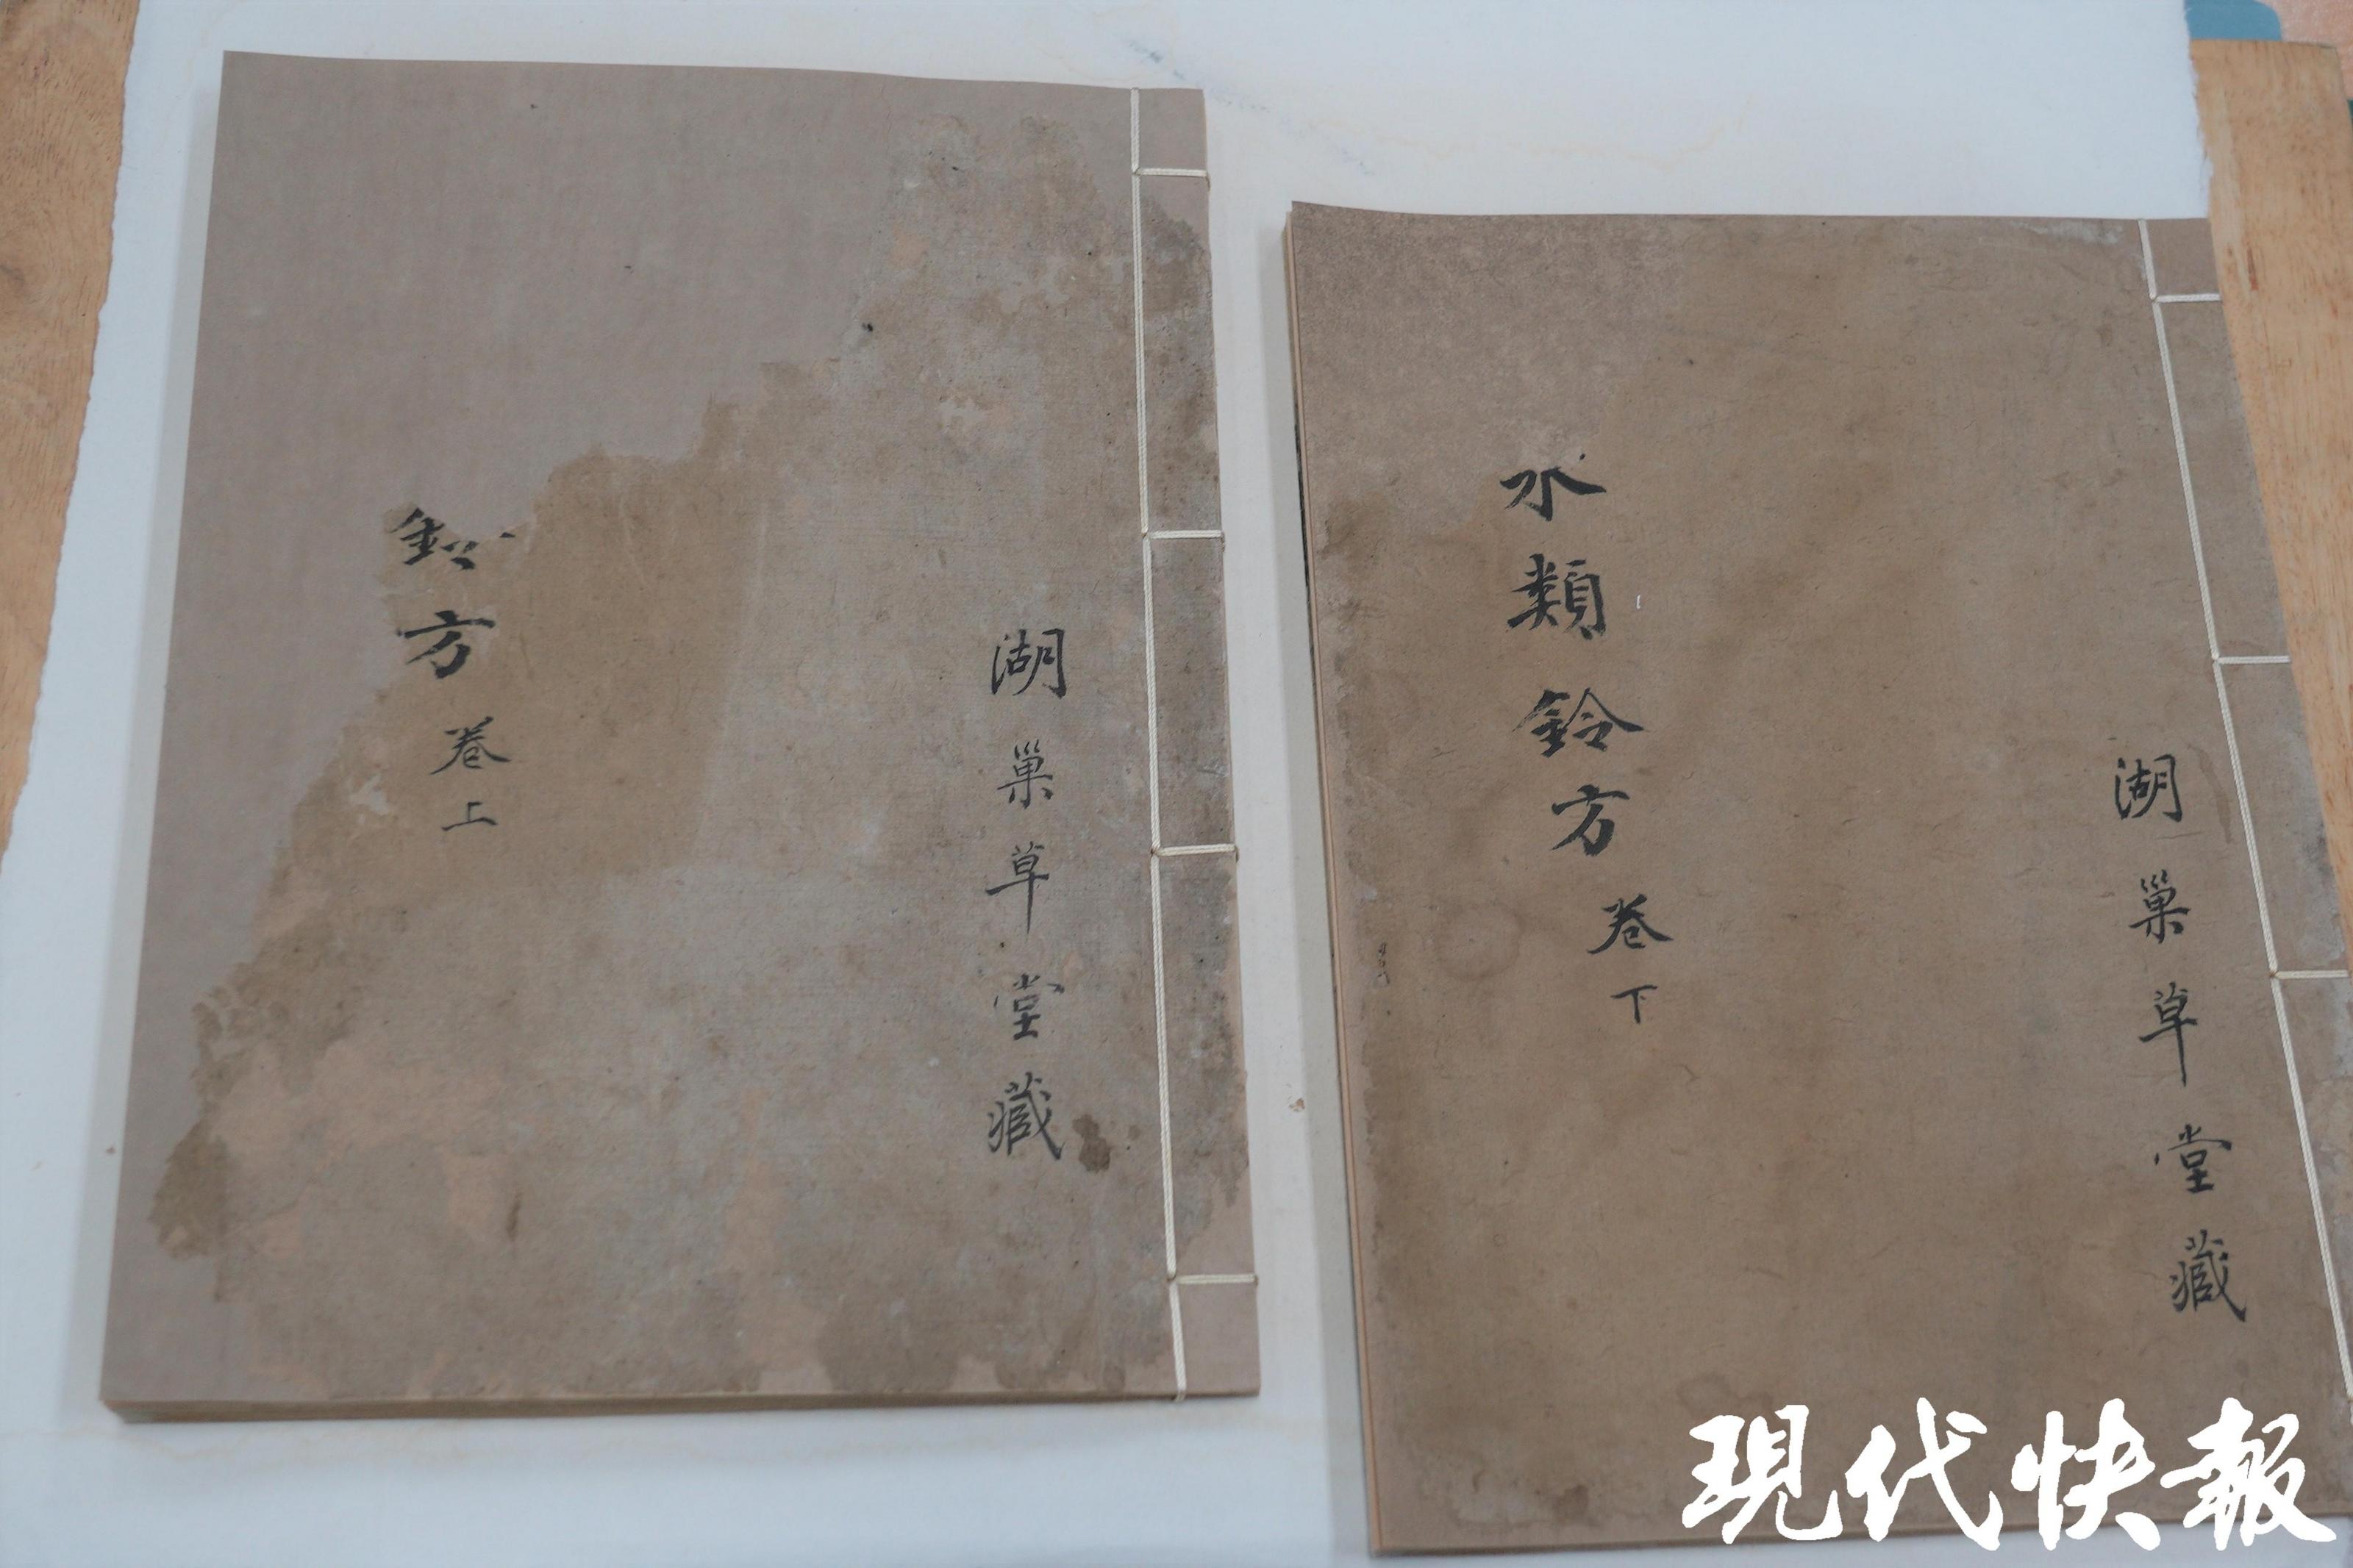 湖巢草堂藏
方卷上
湖巢草堂藏
類鈴方卷下
現代快報